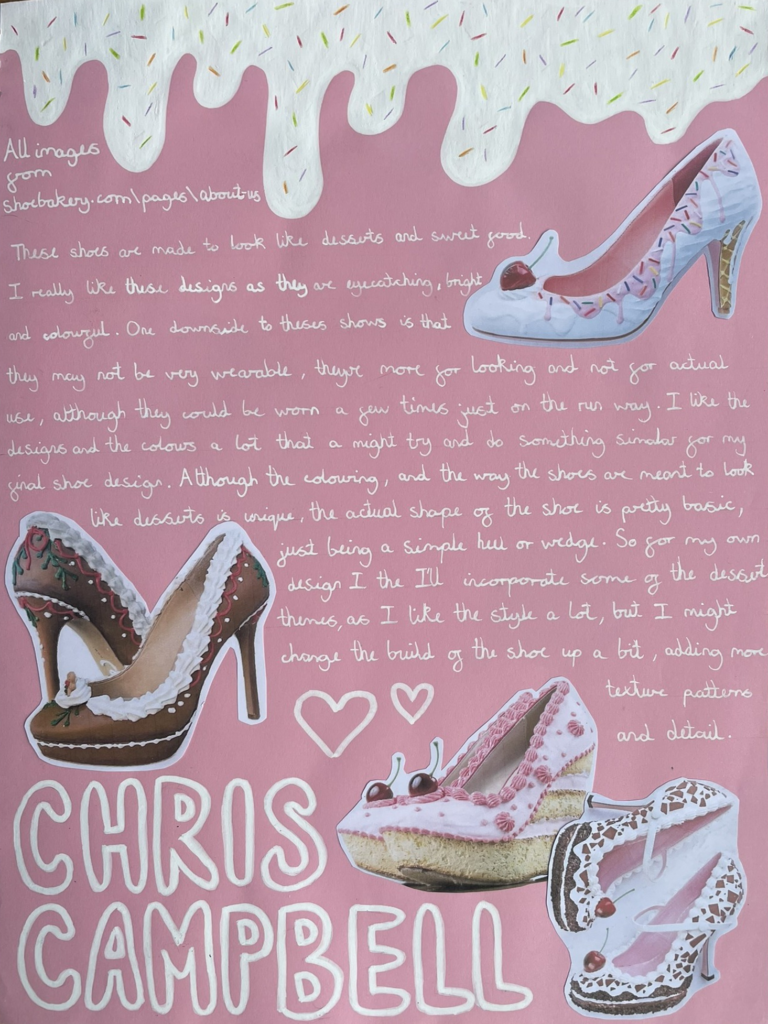 All images
from
shoebakery.com\pages\about-us
These shoes are made to look like desserts and sweet food.
I really like these designs as they are eyecatching, bright
and colourful. One downside to theses shows is that
they may not be very wearable, theyre more for looking and not for actual
use, although they could be worn a few times just on the run way. I like the
designs and the colours a lot that a might try and do something similar for my
final shoe design. Although the colouring, and the way the shoes are meant to look
like desserts is unique, the actual shape of the shoe is pretty basic,
just being a simple heel or wedge. So for my own
design I the I'll incorporate some of the dessert
themes, as I like the style a lot, but I might
change the build of the shoe up a bit, adding more
texture patterns
and detail.
CHRIS
CAMPBELL